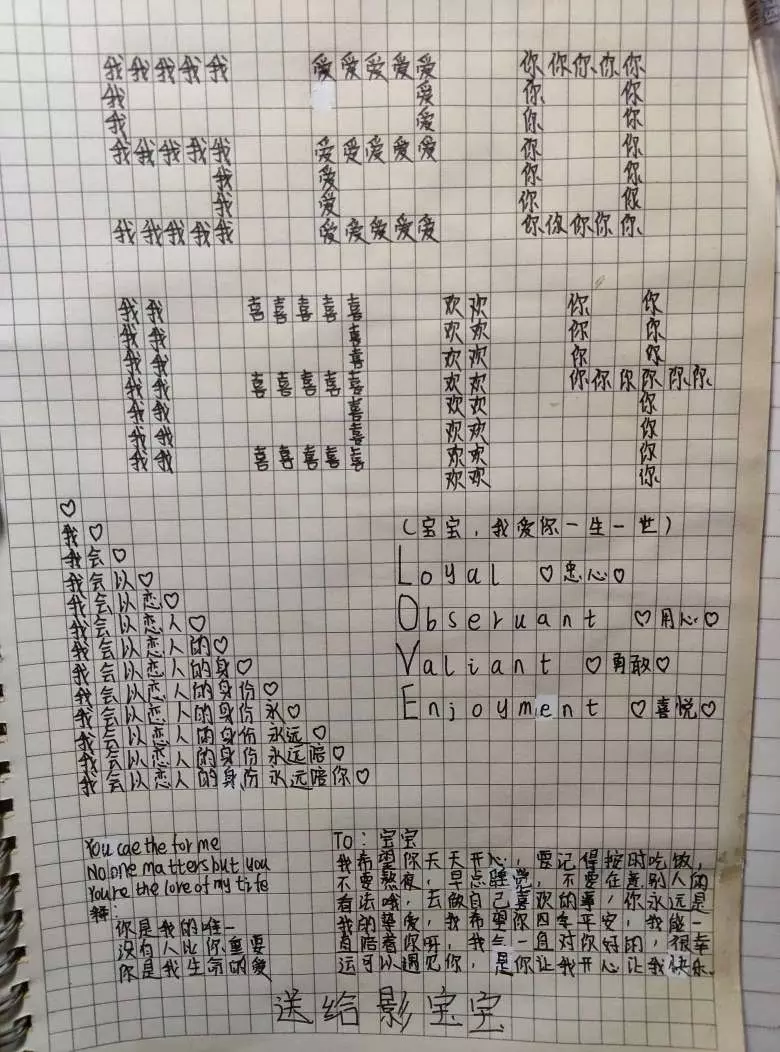 我我我我我 爱爱爱爱爱 你你你你你
我 爱 你 你
我 爱 你 你
我我我我我 爱爱爱爱爱 你 你
我 爱 你 你
我 爱 你 你
我我我我我 爱爱爱爱爱 你你你你你
我我 喜喜喜喜喜 欢欢 你 你
我我 喜 欢欢 你 你
我我 喜 欢欢 你 你
我我 喜喜喜喜喜 欢欢 你你你你你你
我我 喜 欢欢 你
我我 喜 欢欢 你
我我 喜喜喜喜喜 欢欢 你
欢欢 你
♡
我♡
我会♡
我会以♡
我会以恋♡
我会以恋人♡
我会以恋人的♡
我会以恋人的身♡
我会以恋人的身份♡
我会以恋人的身份永♡
我会以恋人的身份永远♡
我会以恋人的身份永远陪♡
我会以恋人的身份永远陪你♡
(宝宝,我爱你一生一世)
Loyal ♡忠心♡
Obseruant ♡用心♡
Valiant ♡勇敢♡
Enjoyment ♡喜悦♡
You cae the for me
No one matters but you
You're the love of my tife
释:
你是我的唯一
没有人比你重要
你是我生命的爱
TO:宝宝
我希望你天天开心,要记得按时吃饭,
不要熬夜,早点睡觉,不要在意别人的
看法哦,去做自己喜欢的事,你永远是
我的挚爱,我希望你四季平安,我能一
直陪着你呀,我会一直对你好的,很幸
运可以遇见你,是你让我开心让我快乐.
送给影宝宝